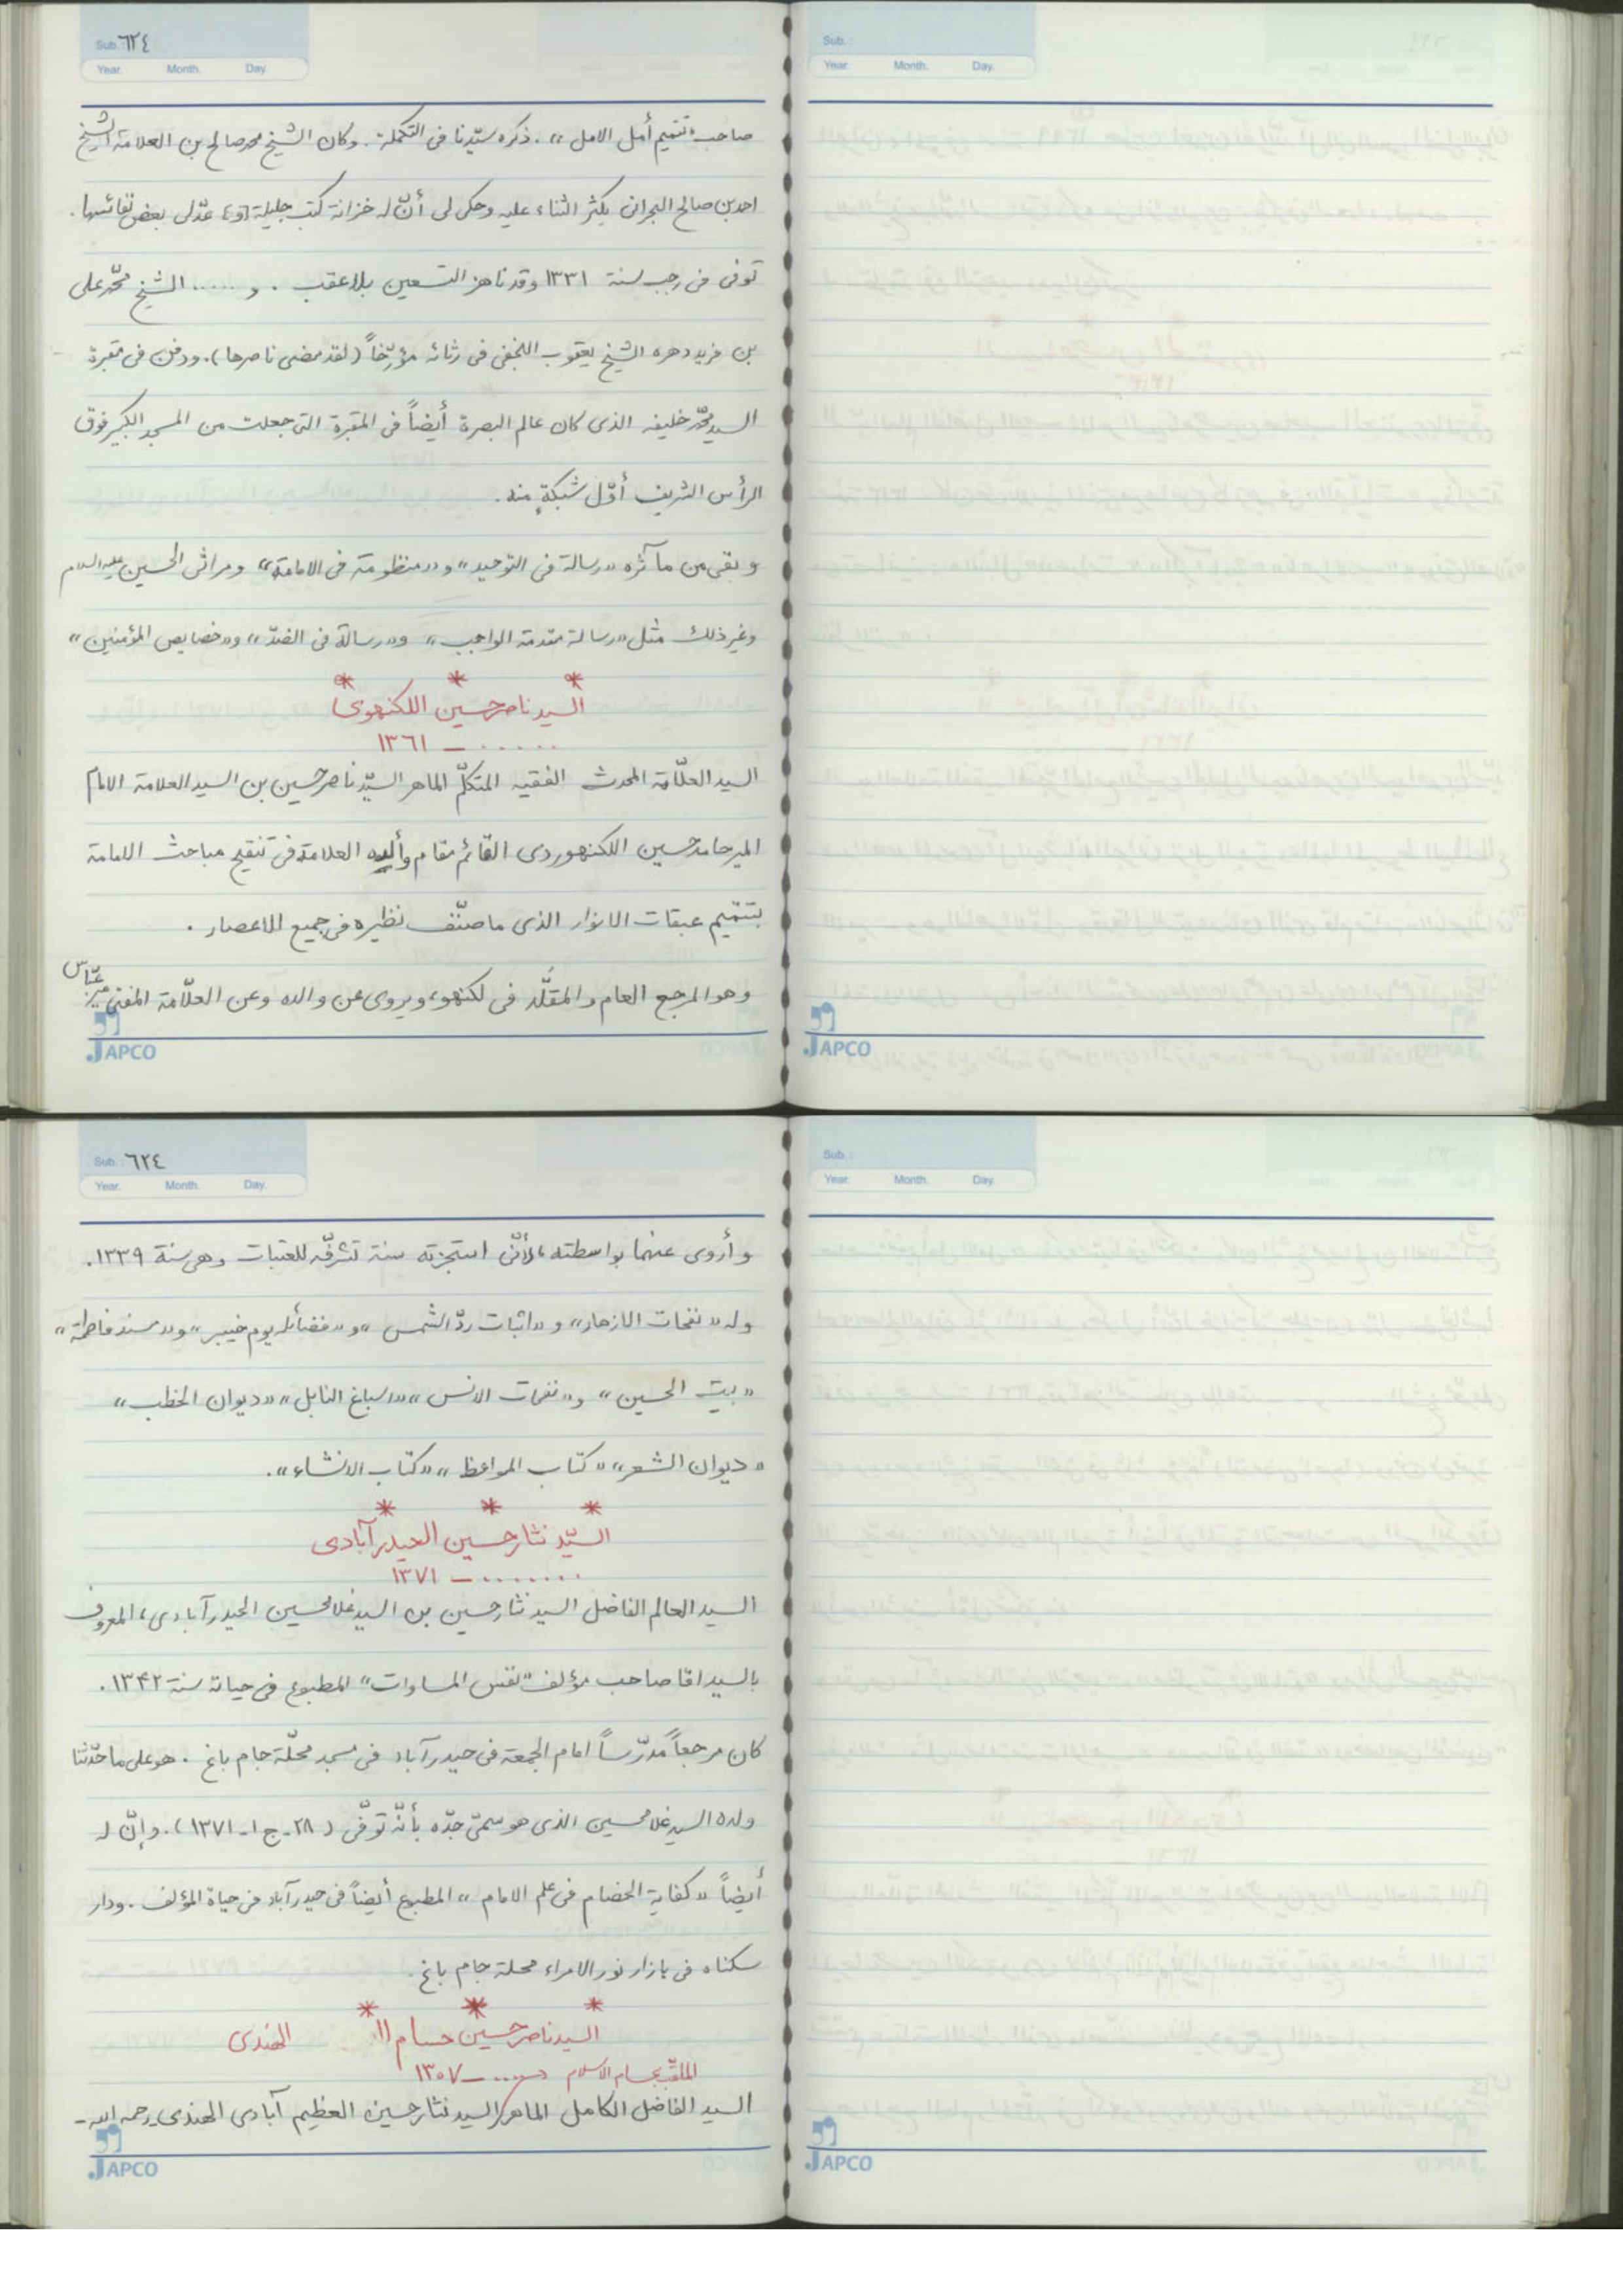 Sub. ٦٢٤
Year. Month. Day.
صاحب «تتميم أمل الامل». ذكره سيّدنا فى التكملة. وكان الشيخ محمد صالح بن العلامة الشيخ
احمد بن صالح البحرانى يكثر الثناء عليه وحكى لى أنّ له خزانة كتب جليلة [و] عدّ لى بعض نفائسها.
توفى فى رجب سنة ١٣٣١ وقد ناهز التسعين بلا عقب. و ..... الشيخ محمّد على
بن فريد دهره الشيخ يعقوب النجفى فى رثائه مؤرّخاً (لقد مضى ناصرها). ودفن فى مقبرة
السيد محمّد خليفه الذى كان عالم البصرة أيضاً فى المقبرة التى جعلت من المسجد الكبير فوق
الرأس الشريف أوّل شبكةٍ منه.
و بقى من مآثره «رسالة فى التوحيد» و«منظومة فى الامامة» ومراثى الحسين عليه السلام
وغير ذلك مثل «رسالة مقدمة الواجب» و«رسالة فى الضدّ» و«خصايص المؤمنين»
* * *
السيد ناصر حسين اللكنهوى
...... – ١٣٦١
السيد العلّامة المحدث الفقيه المتكلّم الماهر السيّد ناصر حسين بن السيد العلامة الامام
المير حامد حسين اللكنهوردى القائم مقام والده العلامة فى تنقيح مباحث الامامة
بتتميم عبقات الانوار الذى ما صنّف نظيره فى جميع الاعصار.
وهو المرجع العام والمقلَّد فى لكنهو، ويروى عن والده وعن العلّامة المفتى مير عبّاس
JAPCO
Sub. :
Year. Month. Day.
JAPCO
Sub. : ٦٢٤
Year. Month. Day.
و أروى عنهما بواسطته، لأنّى استجزته سنة تشرّفه للعتبات وهى سنة ١٣٣٩.
وله «نفحات الازهار» و «اثبات ردّ الشمس» و«فضائله يوم خيبر» و«مسند فاطمة»
«بيت الحسين» و«نفحات الانس» «اسباغ النايل» «ديوان الخطب»
«ديوان الشعر» «كتاب المواعظ» «كتاب الانشاء».
* * *
السيّد نثار حسين الحيدرآبادى
....... – ١٣٧١
السيد العالم الفاضل السيد نثار حسين بن السيد غلامحسين الحيدرآبادى، المعروف
بالسيد اقا صاحب مؤلف «نفس المساوات» المطبوع فى حياته سنة ١٣۴٢.
كان مرجعاً مدرّساً امام الجمعة فى حيدرآباد فى مسجد محلّة جام باغ. هو على ما حدّثنا
ولده السيد غلامحسين الذى هو سمىّ جدّه بأنّه توفّى (٢٨ـ ج ١ـ ١٣٧١). وإنّ له
أيضاً «كفاية الخضام فى علم الامام» المطبوع أيضاً فى حيدرآباد فى حياة المؤلف. ودار
سكناه فى بازار نور الامراء محلة جام باغ.
* * *
السيد ناصر حسين حسام الهندى
الملقّب بحسام الاسلام ..... – ١٣٠٧
السيد الفاضل الكامل الماهر السيد نثار حسين العظيم آبادى الهندى ـ رحمه الله ـ
JAPCO
Sub. :
Year. Month. Day.
JAPCO